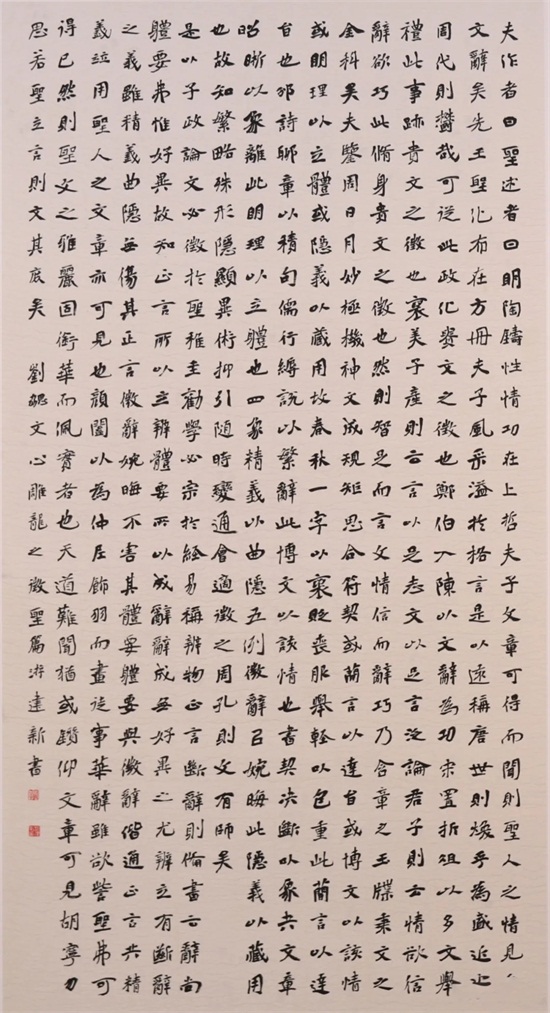 夫作者曰聖述者曰明陶鑄性情功在上哲夫子文章可得而聞則聖人之情見
文辭矣先王聖化布在方冊夫子風采溢於格言是以遠稱唐世則煥乎為盛近止
周代則鬱哉可從此政化貴文之徵也鄭伯入陳以文辭為功宋置折俎以多文舉
禮此事跡貴文之徵也褒美子產則云言以足志文以足言泛論君子則云情欲信
辭欲巧此脩身貴文之徵也然則智足而言文情信而辭巧乃含章之玉牒秉文之
金科矣夫鑒周日月妙極機神文成規矩思合符契或簡言以達旨或博文以該情
或明理以立體或隱義以藏用故春秋一字以褒貶喪服舉輕以包重此簡言以達
旨也邠詩聯章以積句儒行縟說以繁辭此博文以該情也書契決斷以象夬文章
昭晰以象離此明理以立體也四象精義以曲隱五例徵辭以婉晦此隱義以藏用
也故知繁略殊形隱顯異術抑引隨時變通會適徵之周孔則文有師矣
是以子政論文必徵於聖稚圭勸學必宗於經易稱辨物正言斷辭則備書云辭尚
體要弗惟好異故知正言所以立辨體要所以成辭辭成無好異之尤辨立有斷辭
之義雖精義曲隱無傷其正言徵辭婉晦不害其體要體要與徵辭偕通正言共精
義竝用聖人之文章亦可見也顏闔以為仲尼飾羽而畫徒事華辭雖欲訾聖弗可
得已然則聖文之雅麗固銜華而佩實者也天道難聞猶或鑽仰文章可見胡寧勿
思若聖立言則文其庶矣 劉勰文心雕龍之徵聖篇 建新書